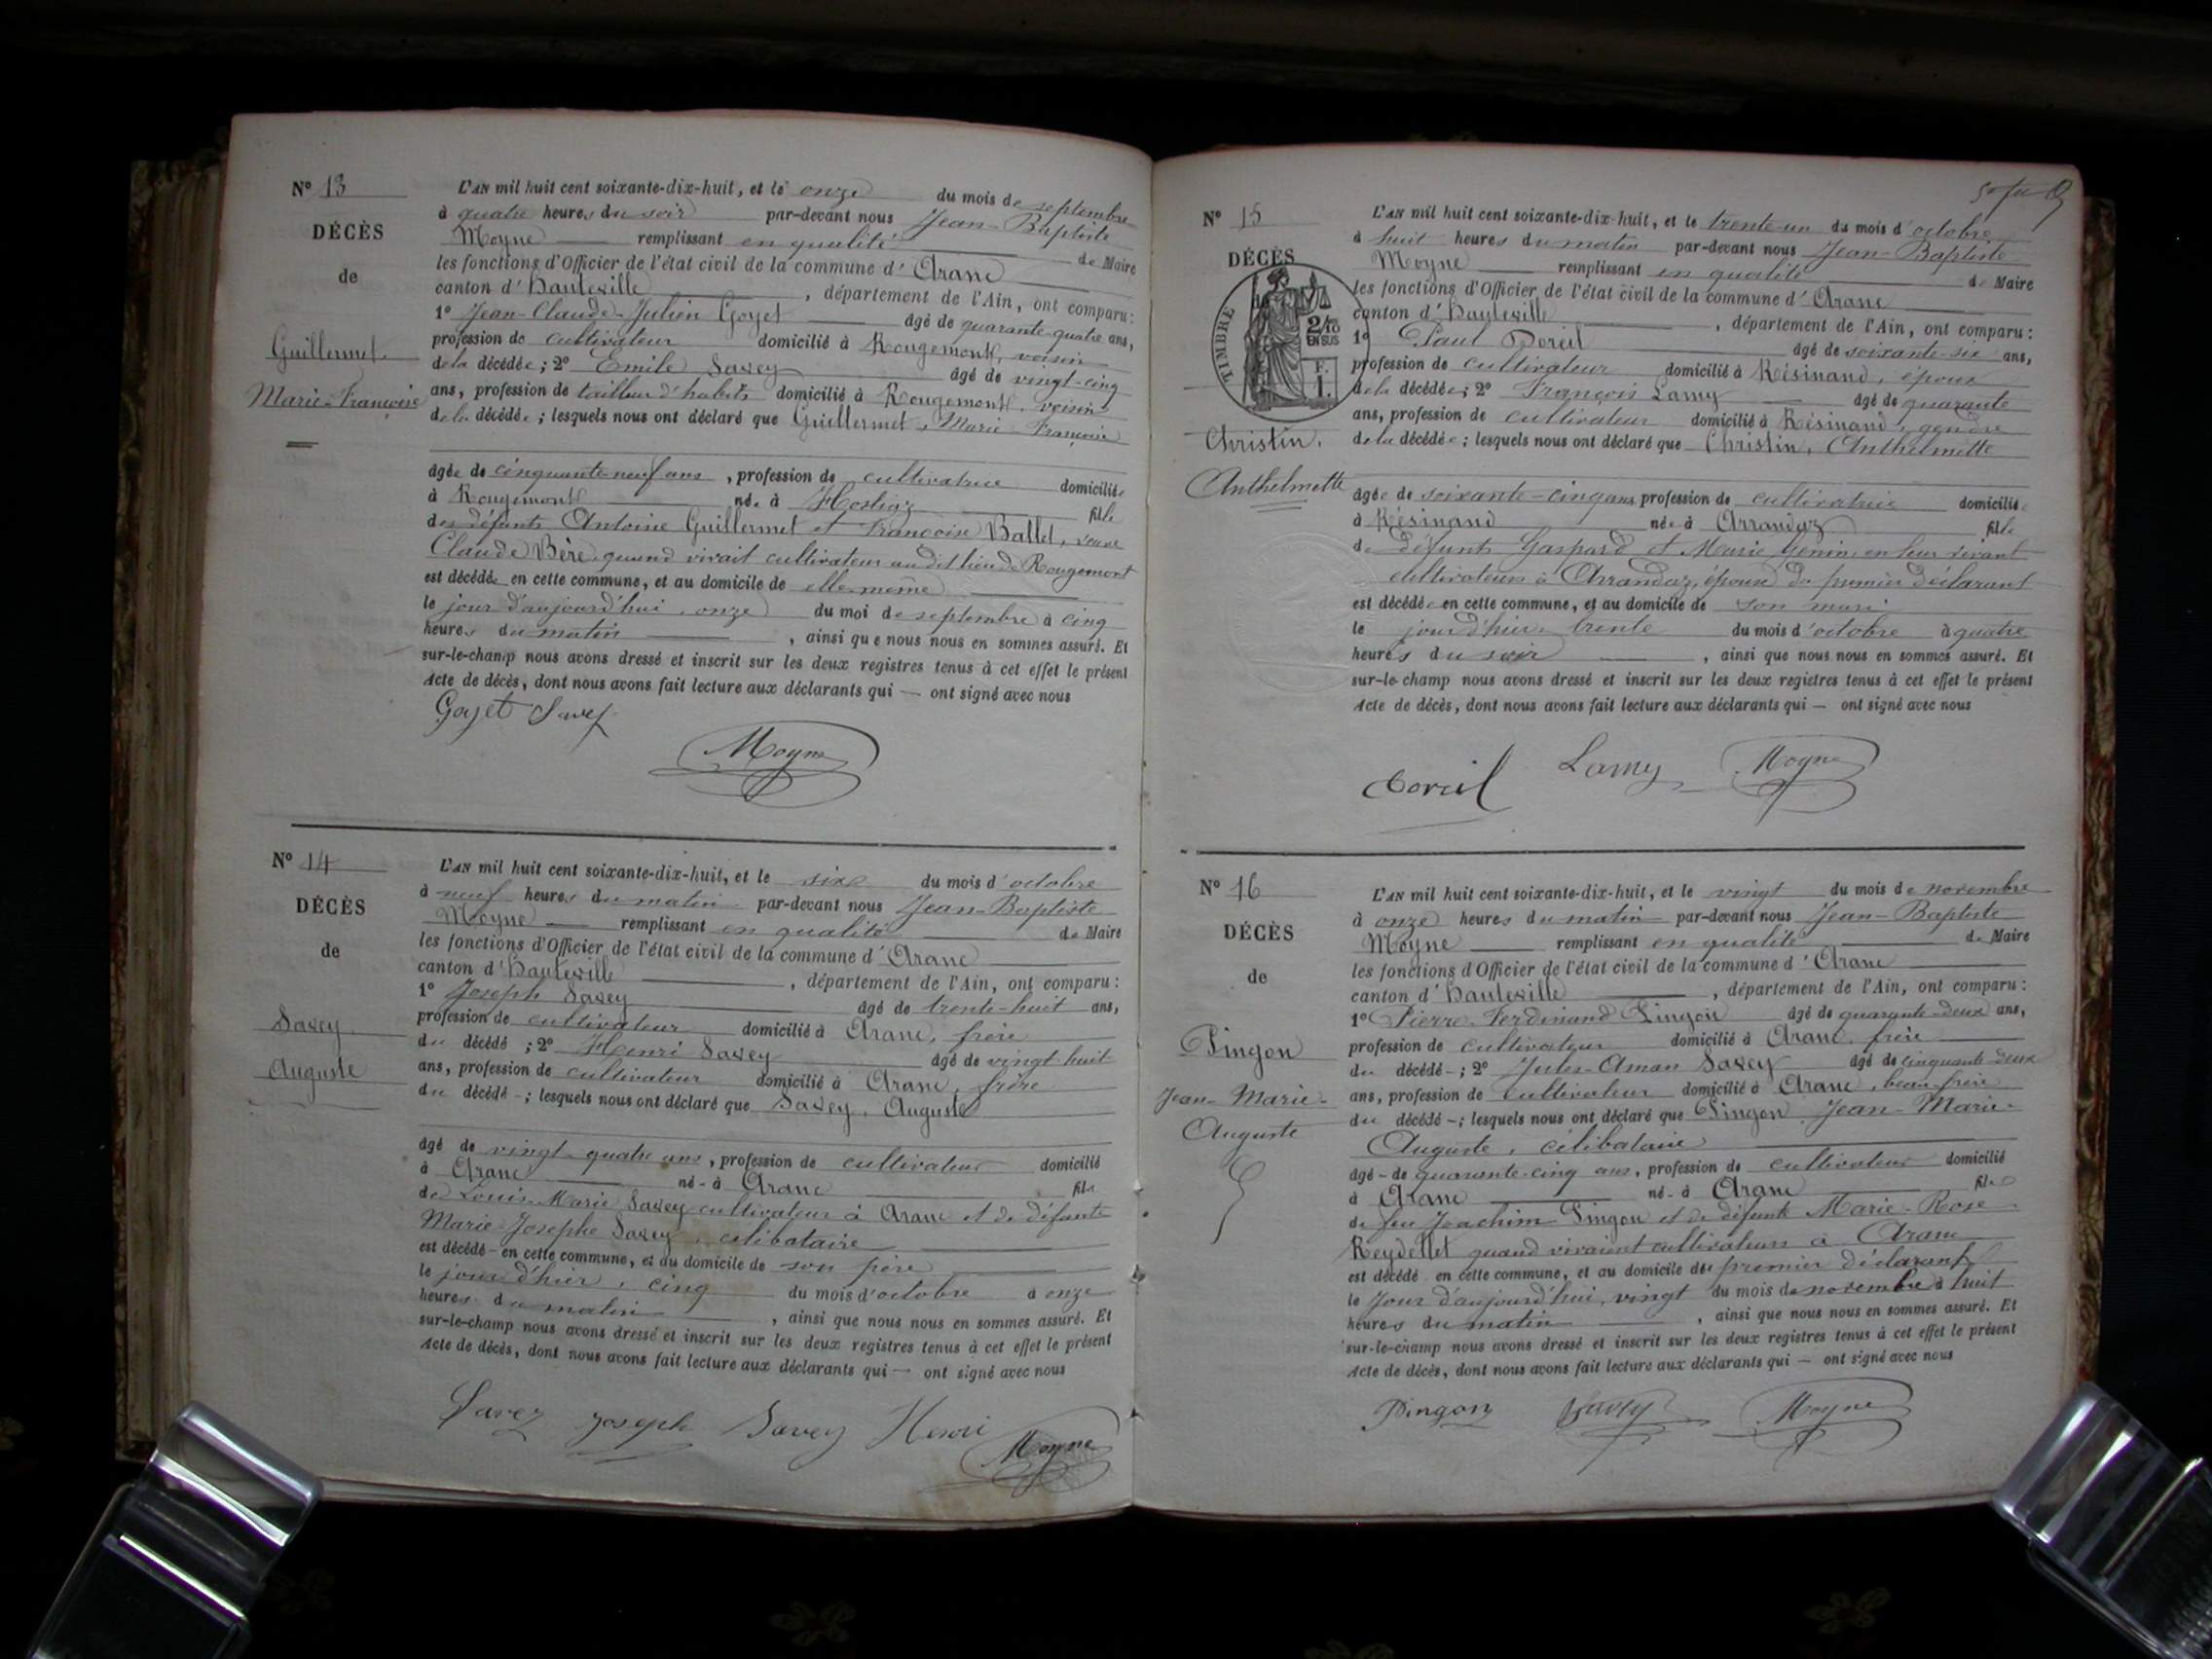 Nº 13
DÉCÈS
de
Guillermet
Marie-Françoise
L'AN mil huit cent soixante-dix-huit, et le onze du mois de septembre
à quatre heures du soir par-devant nous Jean-Baptiste
Moyne remplissant en qualité de Maire
les fonctions d'Officier de l'état civil de la commune d'Aranc
canton d'Hauteville, département de l'Ain, ont comparu:
1º Jean-Claude-Julien Goyet âgé de quarante-quatre ans,
profession de cultivateur domicilié à Rougemont, voisin
de la décédée; 2º Emile Savey âgé de vingt-cinq
ans, profession de tailleur d'habits domicilié à Rougemont, voisin
de la décédée; lesquels nous ont déclaré que Guillermet, Marie-Françoise
âgée de cinquante-neuf ans, profession de cultivatrice domiciliée
à Rougemont née à Hostiaz fille
des défunts Antoine Guillermet et Françoise Ballet, veuve
Claude Bère, quand vivait cultivateur au dit lieu de Rougemont
est décédée en cette commune, et au domicile de elle-même
le jour d'aujourd'hui, onze du moi de septembre à cinq
heures du matin, ainsi que nous nous en sommes assuré. Et
sur-le-champ nous avons dressé et inscrit sur les deux registres tenus à cet effet le présent
Acte de décès, dont nous avons fait lecture aux déclarants qui — ont signé avec nous
Goyet Savey
Moyne
Nº 14
DÉCÈS
de
Savey
Auguste
L'AN mil huit cent soixante-dix-huit, et le six du mois d'octobre
à neuf heures du matin par-devant nous Jean-Baptiste
Moyne remplissant en qualité de Maire
les fonctions d'Officier de l'état civil de la commune d'Aranc
canton d'Hauteville, département de l'Ain, ont comparu:
1º Joseph Savey âgé de trente-huit ans,
profession de cultivateur domicilié à Aranc, frère
du décédé; 2º Henri Savey âgé de vingt-huit
ans, profession de cultivateur domicilié à Aranc, frère
du décédé -; lesquels nous ont déclaré que Savey, Auguste
âgé de vingt-quatre ans, profession de cultivateur domicilié
à Aranc né - à Aranc fils
de Louis-Marie Savey cultivateur à Aranc et de défunte
Marie-Josephe Savey, célibataire
est décédé - en cette commune, et au domicile de son père
le jour d'hier, cinq du mois d'octobre à onze
heures du matin, ainsi que nous nous en sommes assuré. Et
sur-le-champ nous avons dressé et inscrit sur les deux registres tenus à cet effet le présent
Acte de décès, dont nous avons fait lecture aux déclarants qui — ont signé avec nous
Savey Joseph Savey Henri
Moyne
Nº 15
DÉCÈS
TIMBRE
2/10
EN SUS
F.
1.
Christin,
Anthelmette
L'AN mil huit cent soixante-dix-huit, et le trente-un du mois d'octobre
à huit heures du matin par-devant nous Jean-Baptiste
Moyne remplissant en qualité de Maire
les fonctions d'Officier de l'état civil de la commune d'Aranc
canton d'Hauteville, département de l'Ain, ont comparu:
1º Paul âgé de soixante-six ans,
profession de cultivateur domicilié à Résinand, époux
de la décédée; 2º François Lamy âgé de quarante
ans, profession de cultivateur domicilié à Résinand, gendre
de la décédée; lesquels nous ont déclaré que Christin, Anthelmette
âgée de soixante-cinq ans, profession de cultivatrice domiciliée
à Résinand née à Arrandaz fille
de défunts Gaspard et Marie Genin, en leur vivant
cultivateurs à Arrandaz, épouse du premier déclarant
est décédée en cette commune, et au domicile de son mari
le jour d'hier, trente du mois d'octobre à quatre
heures du soir, ainsi que nous nous en sommes assuré. Et
sur-le-champ nous avons dressé et inscrit sur les deux registres tenus à cet effet le présent
Acte de décès, dont nous avons fait lecture aux déclarants qui — ont signé avec nous
Lamy Moyne
Nº 16
DÉCÈS
de
Pingon
Jean-Marie-
Auguste
L'AN mil huit cent soixante-dix-huit, et le vingt du mois de novembre
à onze heures du matin par-devant nous Jean-Baptiste
Moyne remplissant en qualité de Maire
les fonctions d'Officier de l'état civil de la commune d'Aranc
canton d'Hauteville, département de l'Ain, ont comparu:
1º Pierre-Ferdinand Pingon âgé de quarante-deux ans,
profession de cultivateur domicilié à Aranc, frère
du décédé -; 2º Jules-Aman Savey âgé de cinquante-deux
ans, profession de cultivateur domicilié à Aranc, beau-frère
du décédé -; lesquels nous ont déclaré que Pingon, Jean-Marie-
Auguste, célibataire
âgé - de quarante-cinq ans, profession de cultivateur domicilié
à Aranc né - à Aranc fils
de feu Joachim Pingon et de défunte Marie-Rose
Reydellet quand vivaient cultivateurs à Aranc
est décédé en cette commune, et au domicile du premier déclarant
le jour d'aujourd'hui, vingt du mois de novembre à huit
heures du matin, ainsi que nous nous en sommes assuré. Et
sur-le-champ nous avons dressé et inscrit sur les deux registres tenus à cet effet le présent
Acte de décès, dont nous avons fait lecture aux déclarants qui — ont signé avec nous
Pingon Savey Moyne